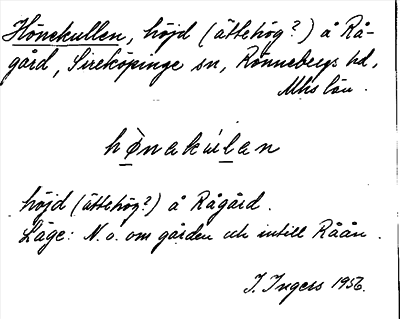 Hönekullen, höjd (ättehög?) å Rå-
gård, Sireköpinge sn, Rönnebergs hd,
Mhs län.
hønakúlan
höjd (ättehög?) å Rågård.
Läge: N.o. om gården och intill Råån.
I. Ingers 1956.